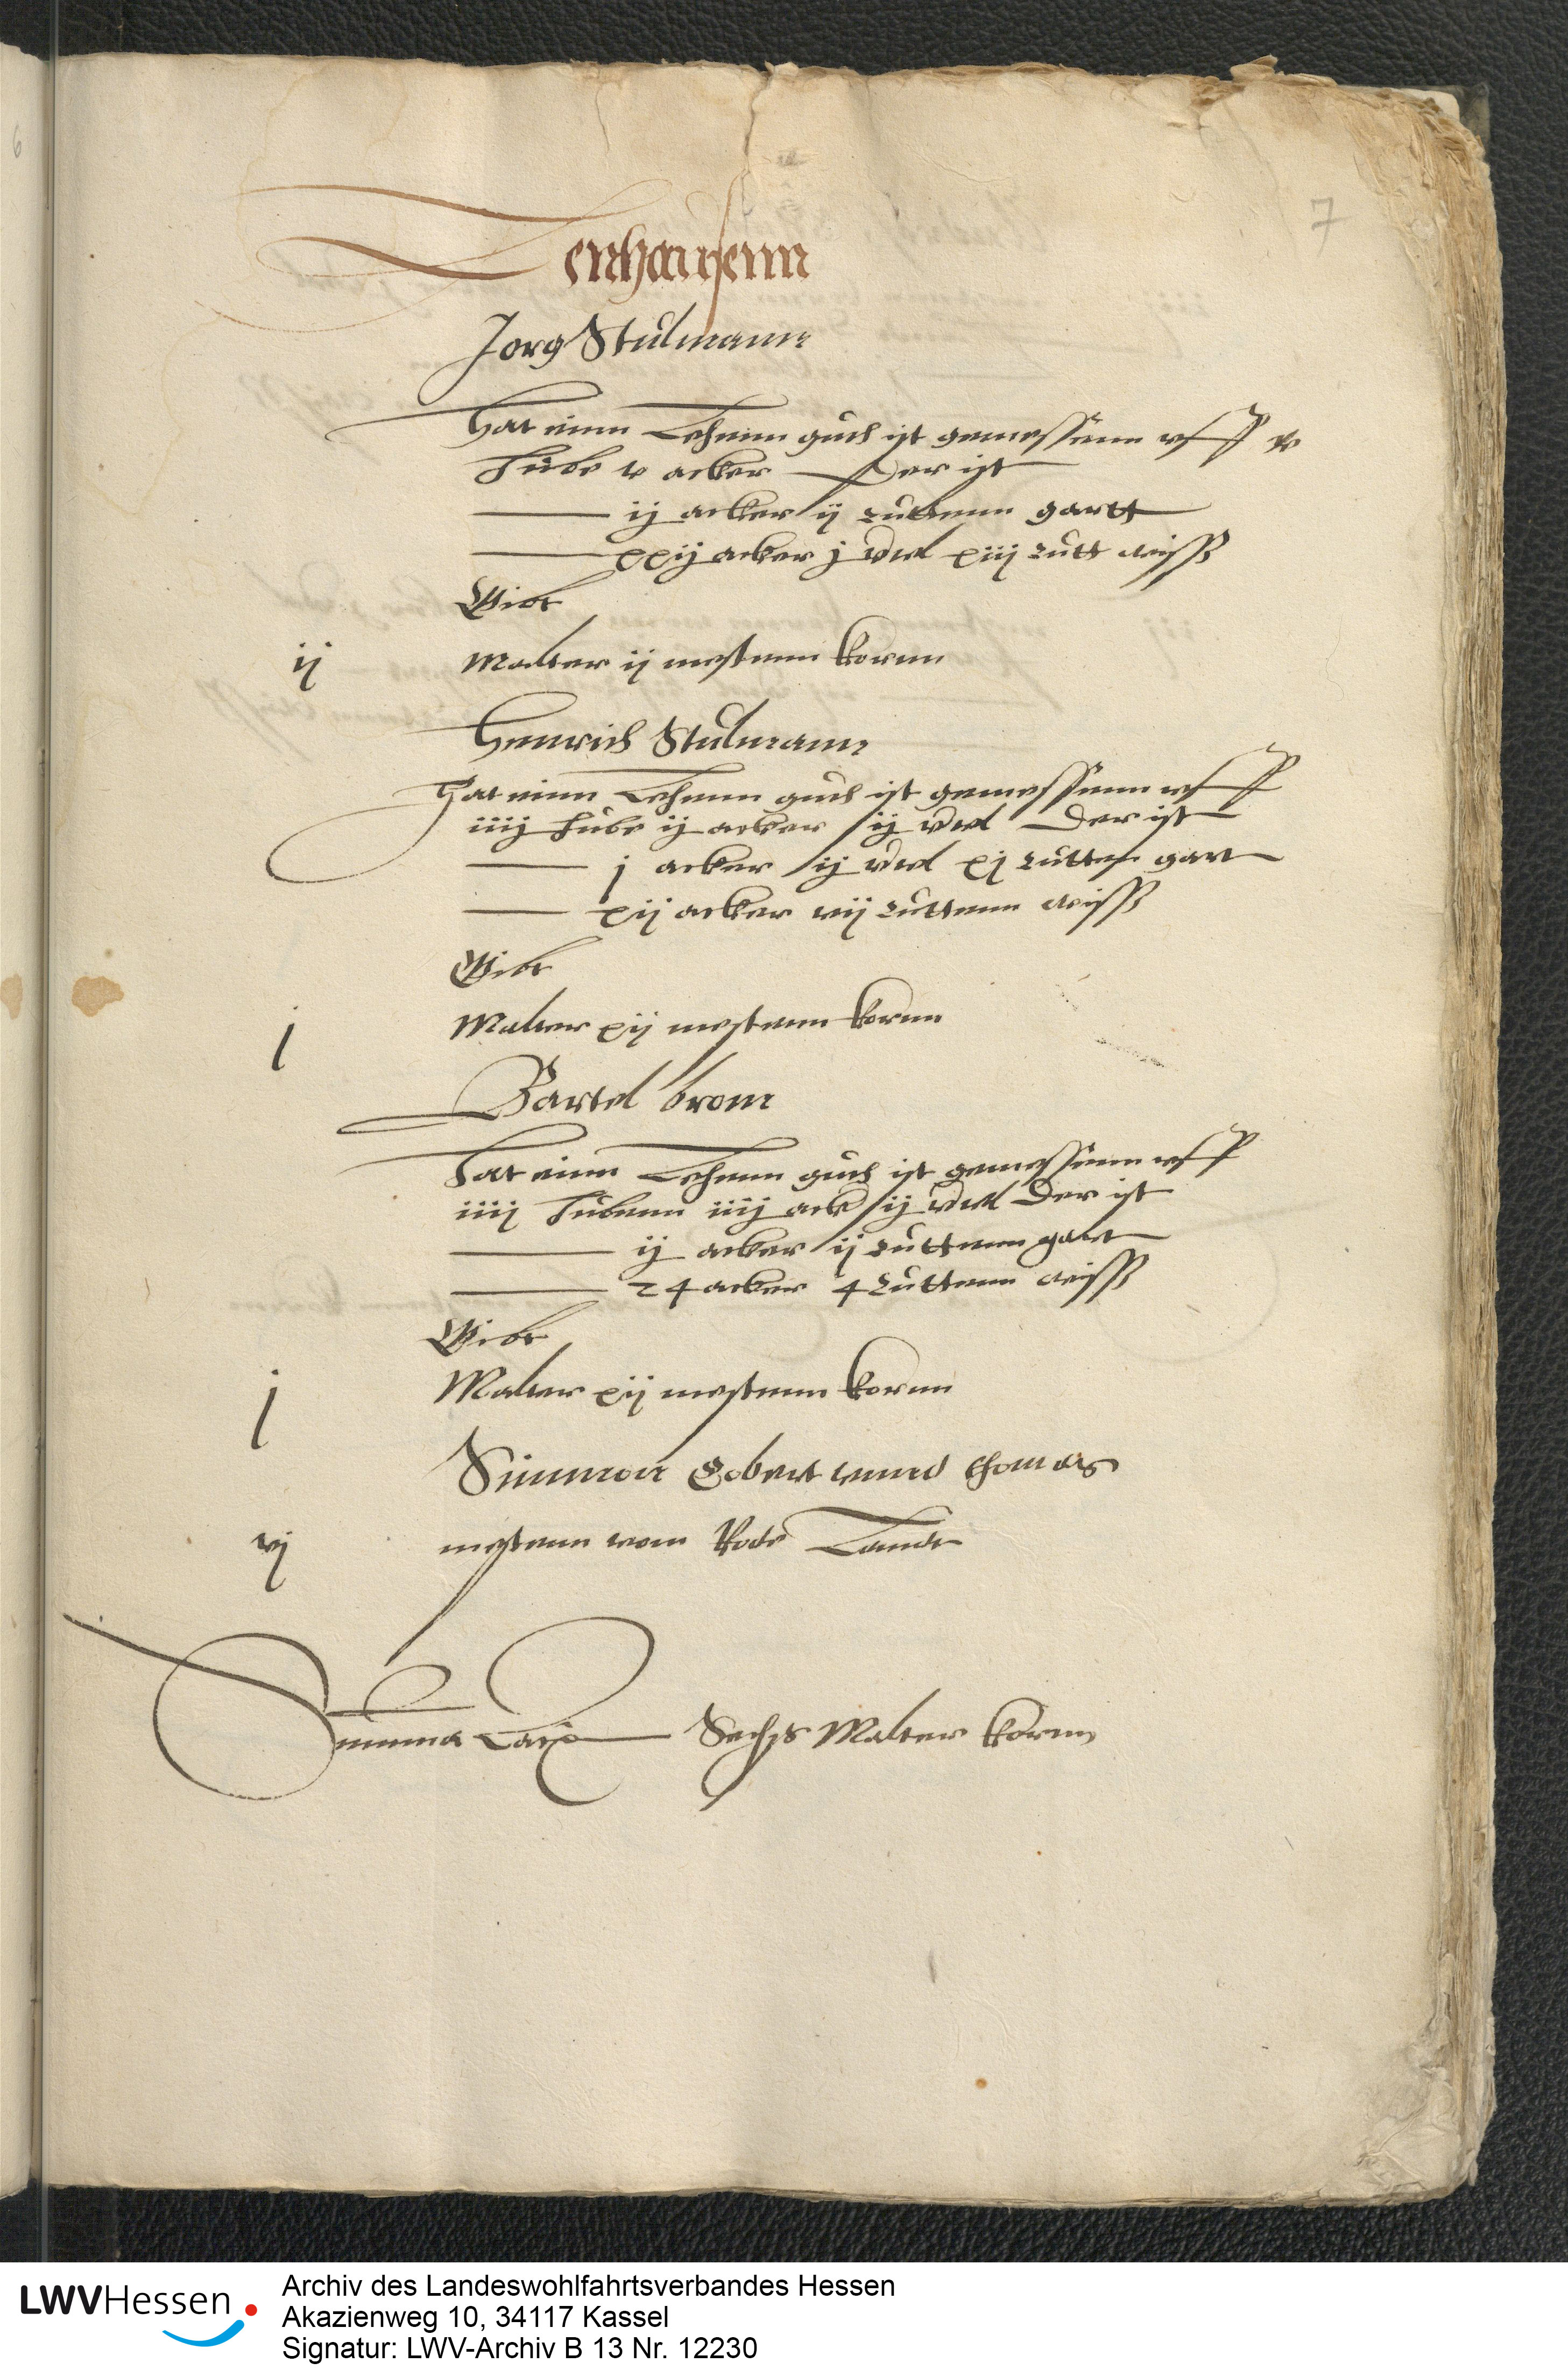 6
7
Zenhausenn
Jorg Stulmann
Hat einn Lehenn guth ist gemessenn uff v
hube v acker Der ist
ij acker ij rutthenn gartt
xxij acker j virtel xiij rutt wiss
Gibt
ij Malter ij mestenn kornn
Henrich Stulmann
Hat einn Lehenn guth ist gemessenn uff
iiij hube ij acker ij virtel Der ist
j acker ij virtel xj rutten gart
xij acker vij ruttenn wiss
Gibt
j Malter xij mestenn kornn
Bartel brom
Hat einn Lehenn guth ist gemessenn uff
iiij hubenn iiij ack ij virtel Der ist
ij acker ij ruttenn gart
24 acker 4 ruttenn wiss
Gibt
j Malter xij mestenn kornn
Simmon Gobert unnd thomas
vj mestenn vom Rode Landt
Summa Sechs Malter kornn
LWVHessen
Archiv des Landeswohlfahrtsverbandes Hessen
Akazienweg 10, 34117 Kassel
Signatur: LWV-Archiv B 13 Nr. 12230